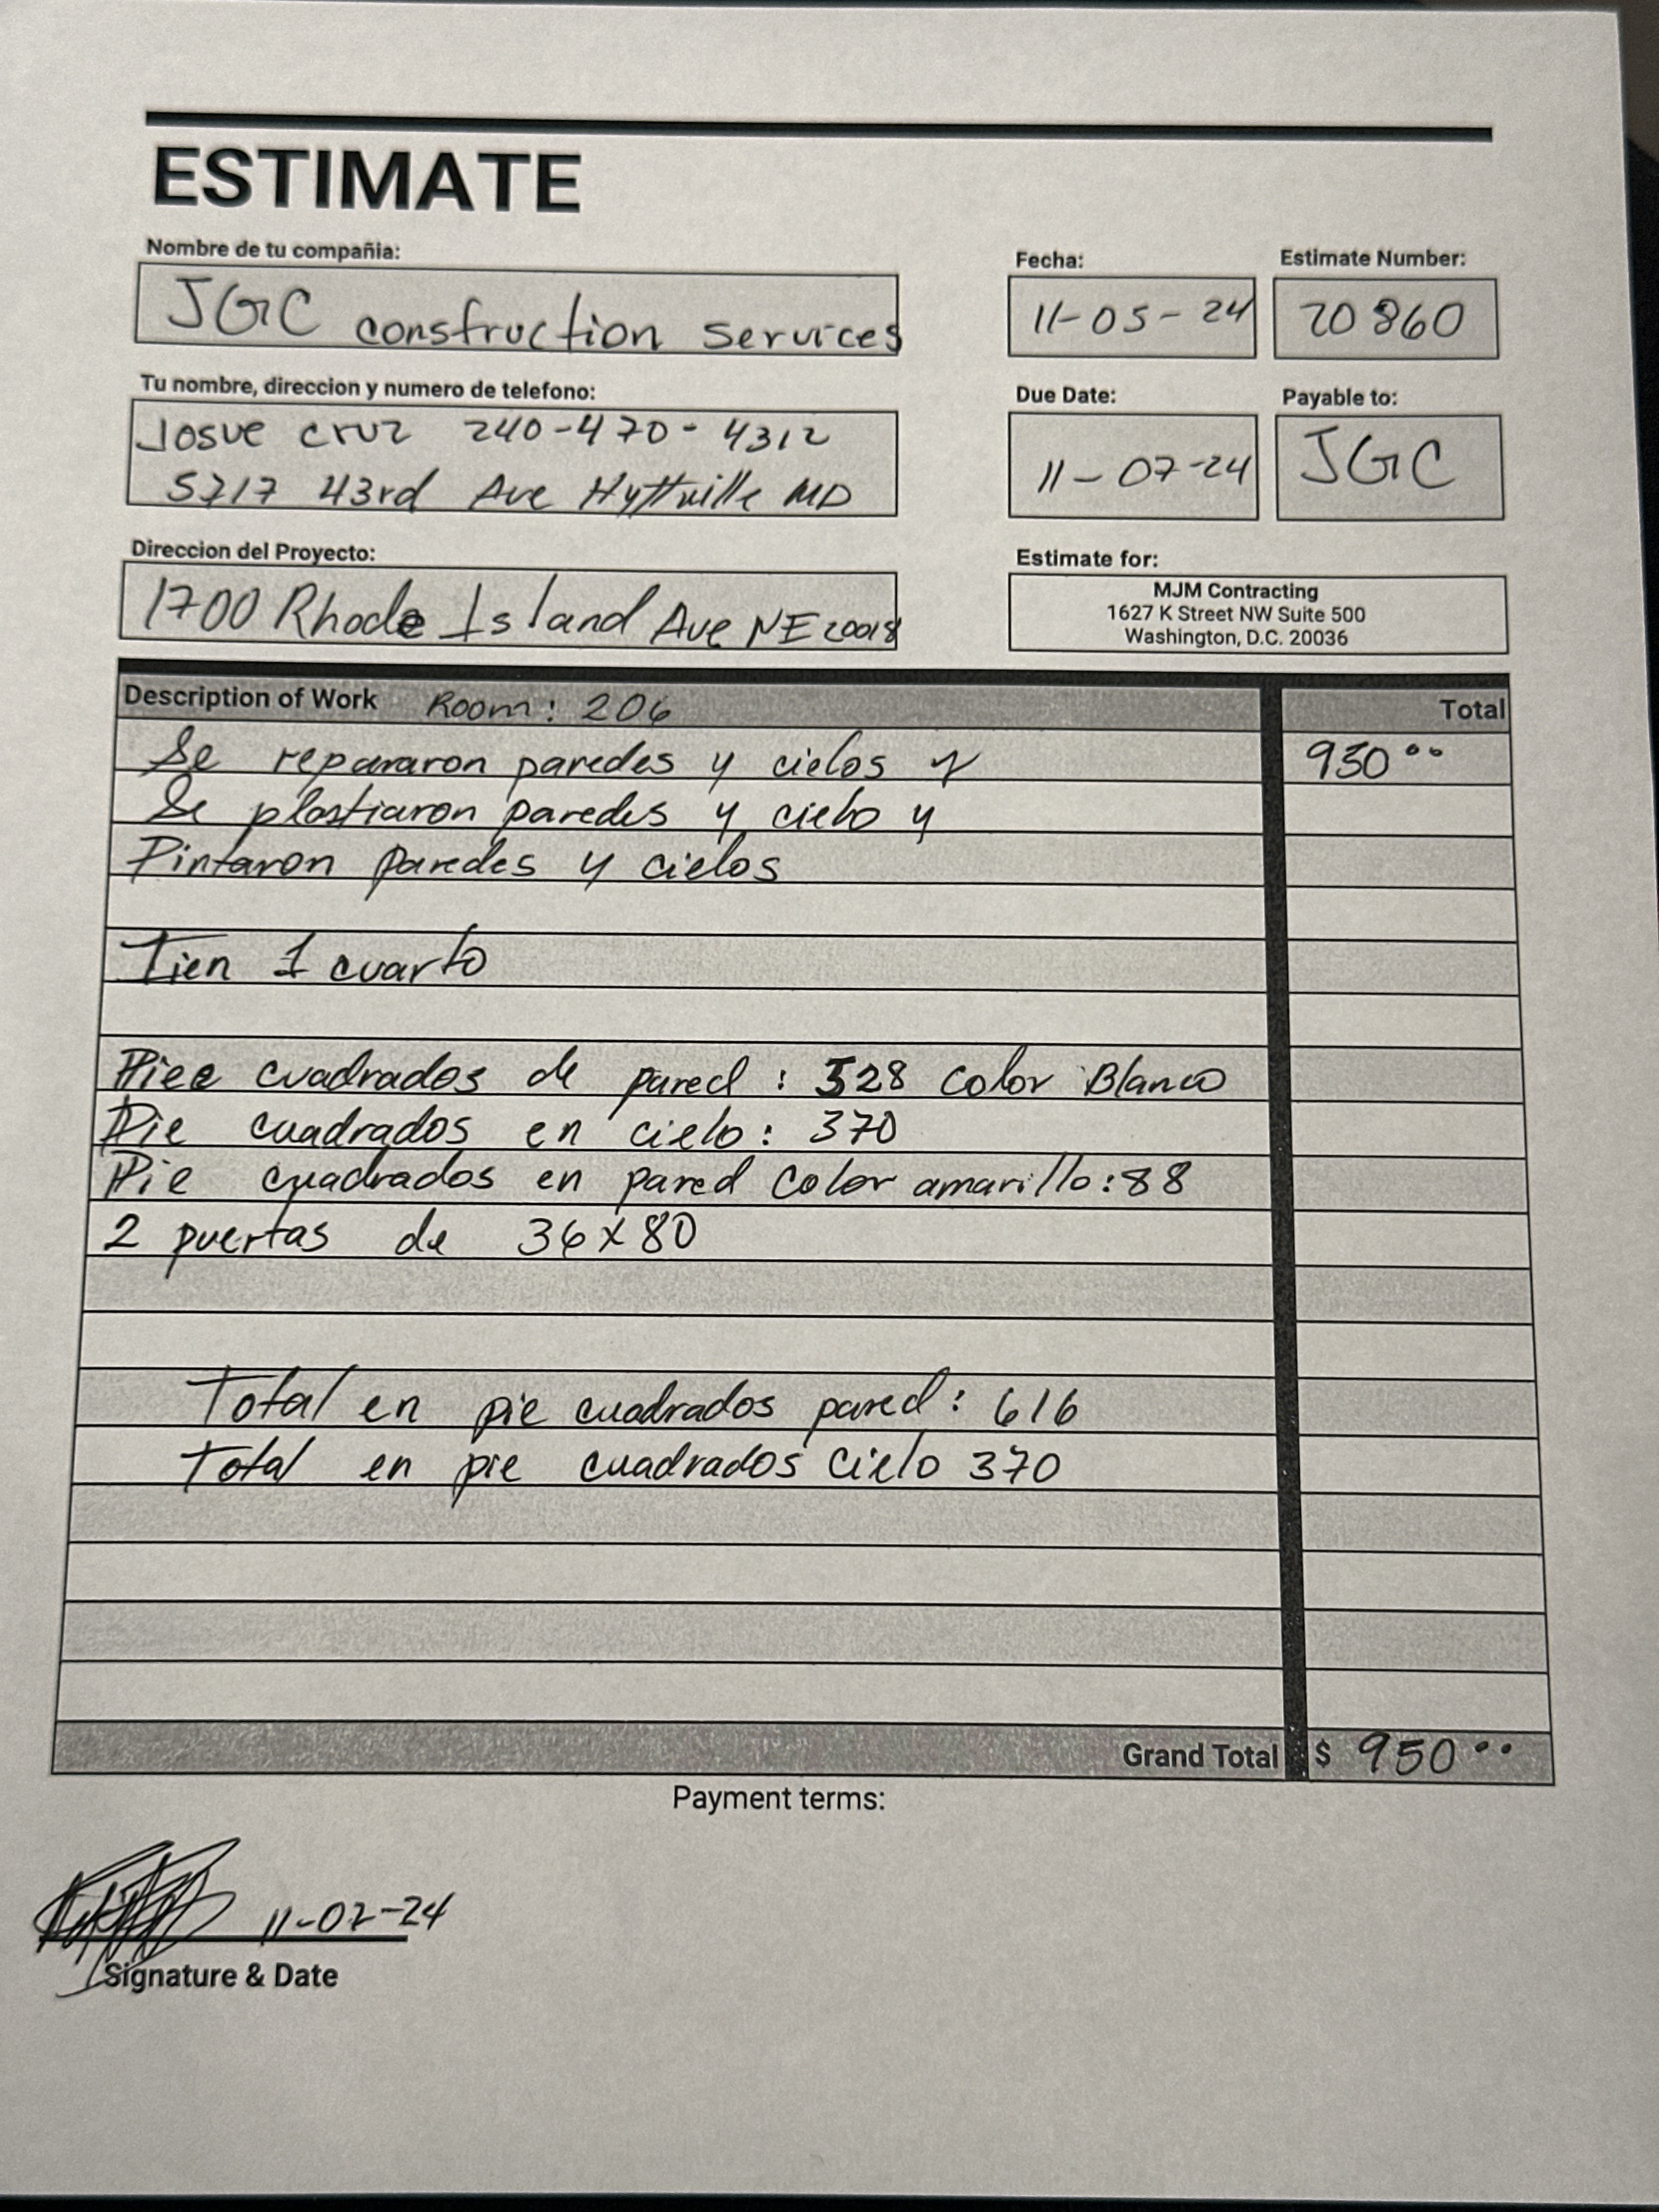 ESTIMATE
Nombre de tu compañia:
JGC construction services
Fecha:
11-05-24
Estimate Number:
20860
Tu nombre, direccion y numero de telefono:
Josue cruz 240-470-4312
5717 43rd Ave Hyttville MD
Due Date:
11-07-24
Payable to:
JGC
Direccion del Proyecto:
1700 Rhode Island Ave NE 20018
Estimate for:
MJM Contracting
1627 K Street NW Suite 500
Washington, D.C. 20036
Description of Work Room: 206 Total
Se repararon paredes y cielos y 950 00
Se plastiaron paredes y cielo y
Pintaron paredes y cielos
Tien 1 cuarto
Piee cuadrados de pared: 528 color Blanco
Pie cuadrados en cielo: 370
Pie cuadrados en pared color amarillo: 88
2 puertas de 36x80
Total en pie cuadrados pared: 616
Total en pie cuadrados cielo 370
Grand Total $ 950 00
Payment terms:
11-07-24
Signature & Date